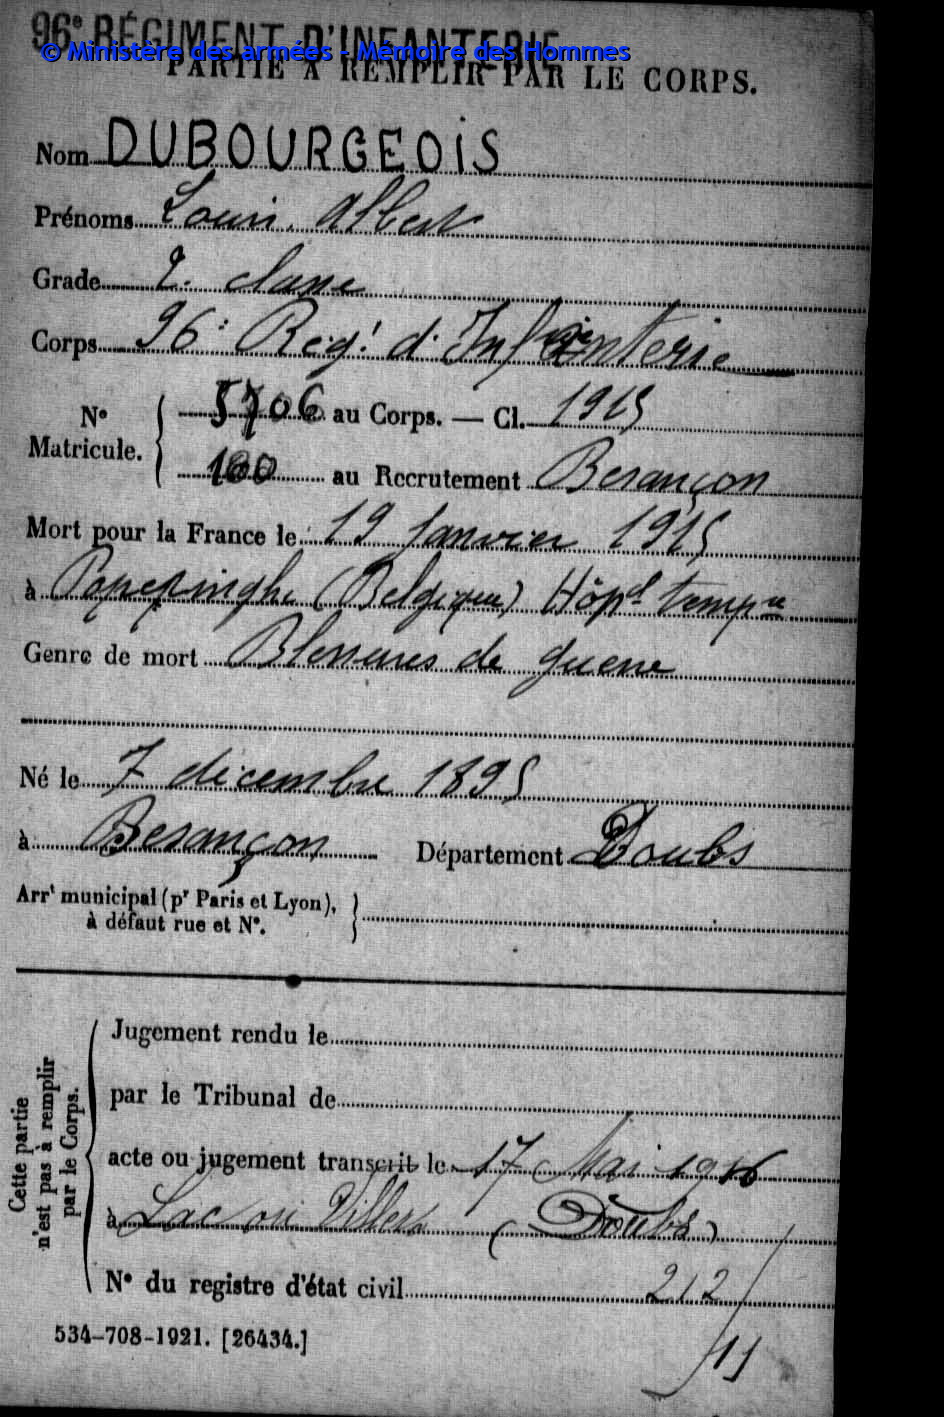 96e RÉGIMENT D'INFANTERIE
© Ministère des armées - Mémoire des Hommes
PARTIE A REMPLIR PAR LE CORPS.
Nom DUBOURGEOIS
Prénoms Louis, Albert
Grade 2. classe
Corps 96e Rég! d'Infanterie
No Matricule. { 5706 au Corps. — Cl. 1915
100 au Recrutement Besançon
Mort pour la France le 19 Janvier 1915
à Poperinghe (Belgique) Hôpal tempre
Genre de mort Blessures de guerre
Né le 7 décembre 1895
à Besançon Département Doubs
Arrt municipal (pr Paris et Lyon), à défaut rue et No. }
Cette partie n'est pas à remplir par le Corps.
Jugement rendu le
par le Tribunal de
acte ou jugement transcrit le 17 Mai 1916
à Lac ou Villers (Doubs)
No du registre d'état civil 212/11
534-708-1921. [26434.]